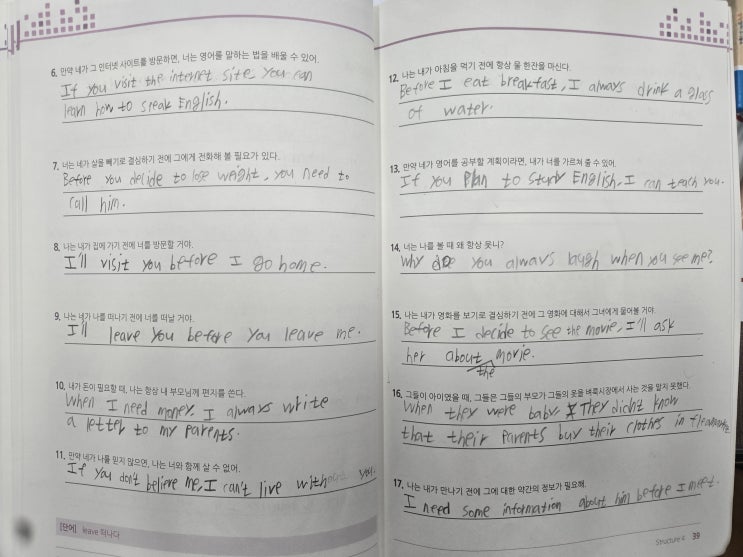 6. 만약 네가 그 인터넷 사이트를 방문하면, 너는 영어를 말하는 법을 배울 수 있어.
If you visit the internet site, you can
learn how to speak English.
7. 너는 네가 살을 빼기로 결심하기 전에 그에게 전화해 볼 필요가 있다.
Before you decide to lose weight, you need to
call him.
8. 나는 내가 집에 가기 전에 너를 방문할 거야.
I'll visit you before I go home.
9. 나는 네가 나를 떠나기 전에 너를 떠날 거야.
I'll leave you before you leave me.
10. 내가 돈이 필요할 때, 나는 항상 내 부모님께 편지를 쓴다.
When I need money, I always write
a letter to my parents.
11. 만약 네가 나를 믿지 않으면, 나는 너와 함께 살 수 없어.
If you don't believe me, I can't live without you.
[단어] leave 떠나다
12. 나는 내가 아침을 먹기 전에 항상 물 한잔을 마신다.
Before I eat breakfast, I always drink a glass
of water.
13. 만약 네가 영어를 공부할 계획이라면, 내가 너를 가르쳐 줄 수 있어.
If you plan to study English, I can teach you.
14. 너는 나를 볼 때 왜 항상 웃니?
Why do you always laugh when you see me?
15. 나는 내가 영화를 보기로 결심하기 전에 그 영화에 대해서 그녀에게 물어볼 거야.
Before I decide to see the movie, I'll ask
her about the movie.
16. 그들이 아이였을 때, 그들은 그들의 부모가 그들의 옷을 벼룩시장에서 사는 것을 알지 못했다.
When they were baby, They didn't know
that their parents buy their clothes in fleamarke
17. 나는 내가 만나기 전에 그에 대한 약간의 정보가 필요해.
I need some information about him before I meet.
Structure 4 39